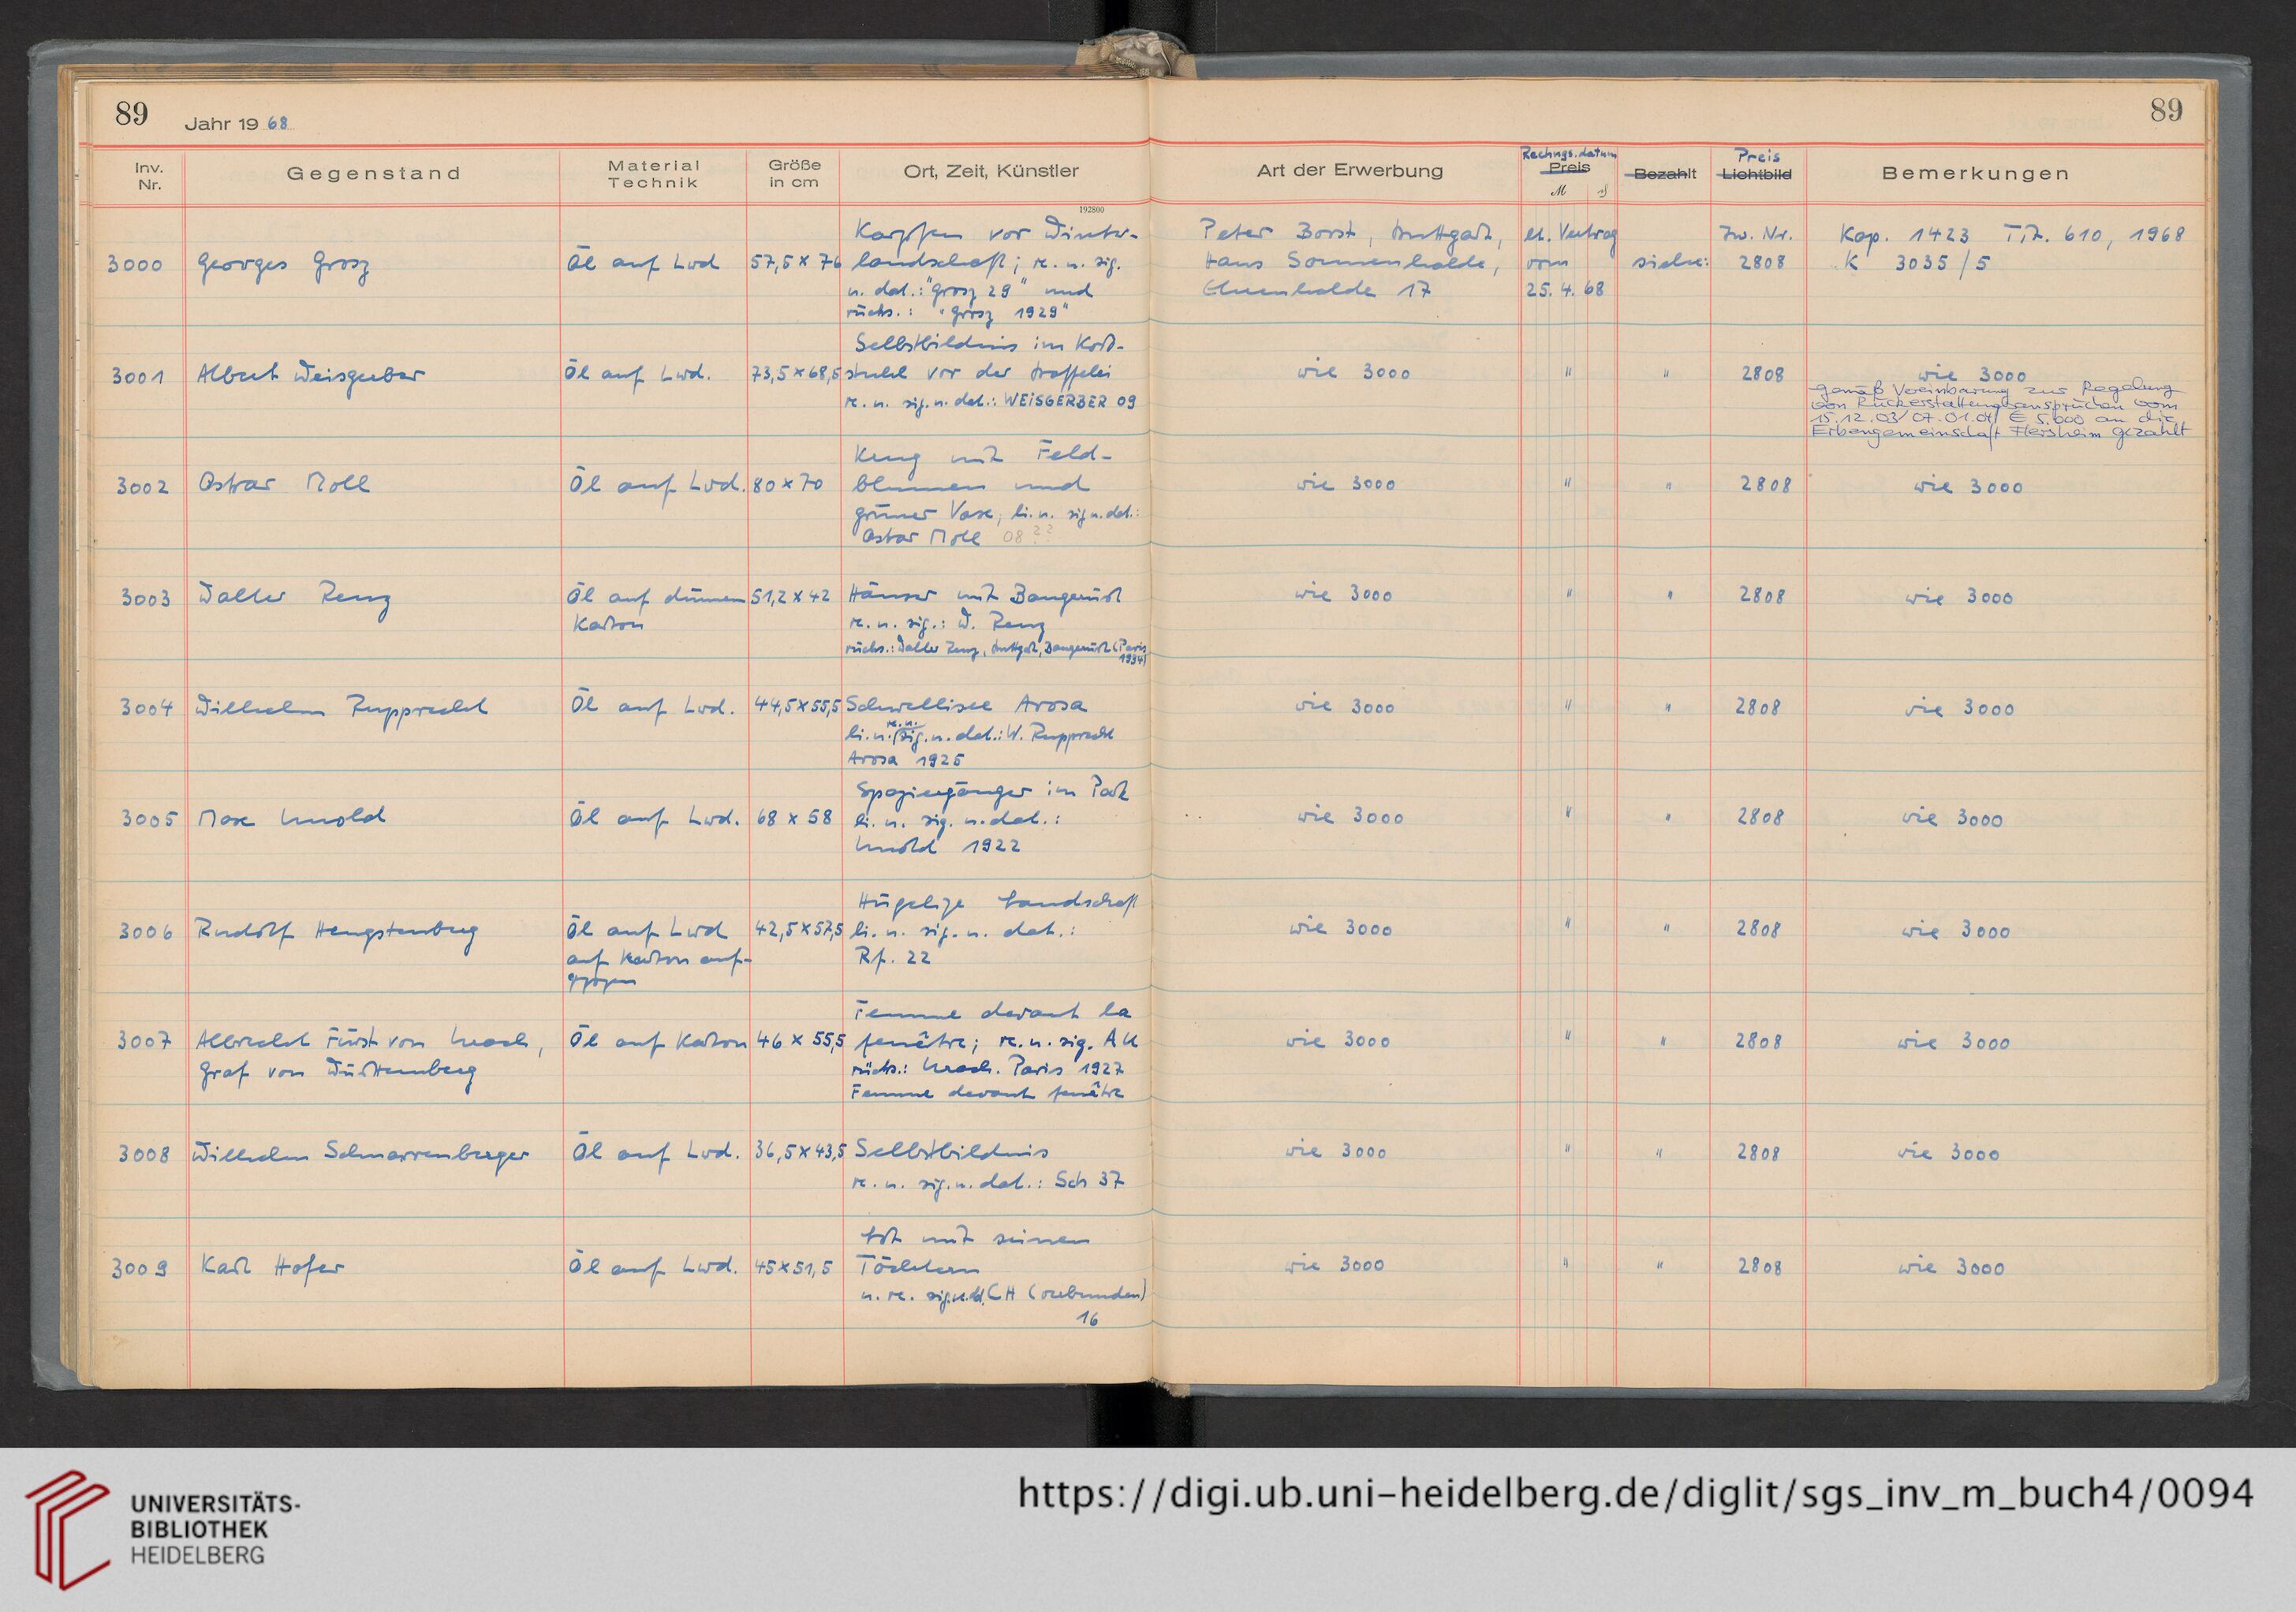 89
Jahr 19 68
89
Inv. Nr.
Gegenstand
Material Technik
Größe in cm
Ort, Zeit, Künstler
Art der Erwerbung
Rechngs.datum
Preis
M
Bezahlt
Preis
Lichtbild
Bemerkungen
192800
3000 Georges Grosz Öl auf Lwd 57,5 x 76
Karpfen vor Winter-
landschaft; re. u. sig.
u. dat.: "Grosz 29" und
rücks.: "Grosz 1929"
Peter Borst, Stuttgart,
Haus Sonnenhalde,
17
lt. Vertrag
vom
25. 4. 68
siehe:
Zw. Nr.
2808
Kap. 1423 Tit. 610, 1968
K 3035/5
3001 Albert Weisgerber Öl auf Lwd. 73,5 x 68,5
Selbstbildnis im Korb-
stuhl vor der Staffelei
re. u. sig. u. dat.: WEISGERBER 09
wie 3000 " " 2808 wie 3000
gemäß Vereinbarung zur Regelung
von Rückerstattungsansprüchen vom
15.12.03/07.01.04 € 5.000 an die
Erbengemeinschaft Flersheim gezahlt
3002 Oskar Moll Öl auf Lwd. 80 x 70
Krug mit Feld-
blumen und
grüner Vase, li. u. sig u. dat.:
Oskar Moll 08??
wie 3000 " " 2808 wie 3000
3003 Walter Renz Öl auf dünnem
Karton
51,2 x 42
Häuser mit Baugerüst
re. u. sig.: W. Renz
rücks.: Walter Renz, Stuttgart, Baugerüst (Paris
1934)
wie 3000 " " 2808 wie 3000
3004 Wilhelm Rupprecht Öl auf Lwd. 44,5 x 55,5
Schwellisee Arosa
re. u.
li. u. sig. u. dat.: W. Rupprecht
Arosa 1925
wie 3000 " " 2808 wie 3000
3005 Max Unold Öl auf Lwd. 68 x 58
Spaziergänger im Park
li. u. sig. u. dat.:
Unold 1922
wie 3000 " " 2808 wie 3000
3006 Rudolf Hengstenberg Öl auf Lwd
auf Karton auf-
gezogen
42,5 x 57,5
Hügelige Landschaft
li. u. sig. u. dat.:
Rf. 22
wie 3000 " " 2808 wie 3000
3007 Albrecht Fürst von Urach,
Graf von Württemberg
Öl auf Karton 46 x 55,5
Femme devant la
fenêtre; re. u. sig. AU
rücks.: Urach. Paris 1927
Femme devant fenêtre
wie 3000 " " 2808 wie 3000
3008 Wilhelm Schnarrenberger Öl auf Lwd. 36,5 x 43,5
Selbstbildnis
re. u. sig. u. dat.: Sch 37
wie 3000 " " 2808 wie 3000
3009 Karl Hofer Öl auf Lwd. 45 x 51,5
Lot mit seinen
Töchtern
u. re. sig. u. dat. CH (verbunden)
16
wie 3000 " " 2808 wie 3000
UNIVERSITÄTS-
BIBLIOTHEK
HEIDELBERG
https://digi.ub.uni-heidelberg.de/diglit/sgs_inv_m_buch4/0094